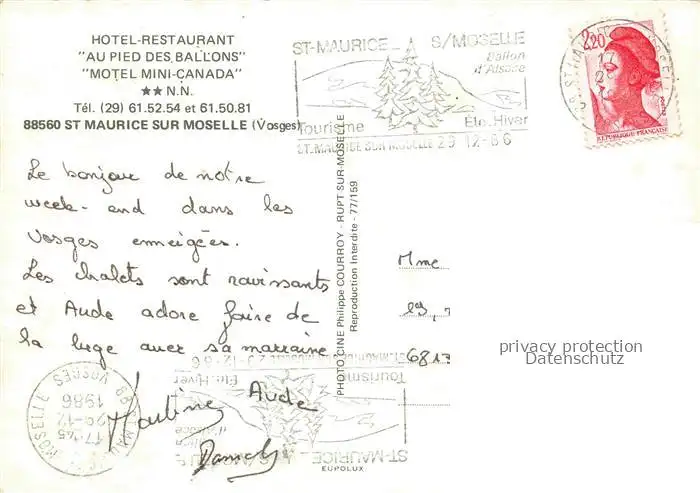 HOTEL-RESTAURANT
"AU PIED DES BALLONS"
"MOTEL MINI-CANADA"
★★ N.N.
Tél. (29) 61.52.54 et 61.50.81
88560 ST MAURICE SUR MOSELLE (Vosges)
ST-MAURICE S/MOSELLE
Ballon
d'Alsace
Tourisme Eté.Hiver
ST.MAURICE SUR MOSELLE 29 12-86
2,20
POSTES
REPUBLIQUE FRANÇAISE
Le bonjour de notre
week-end dans les
Vosges enneigées.
Les chalets sont ravissants
et Aude adore faire de
la luge avec sa marraine
Martine Aude
PHOTO CINE Philippe COURROY - RUPT SUR-MOSELLE
Reproduction Interdite - 77/159
Mme
19,
6813
privacy protection
Datenschutz
ST.MAURICE SUR MOSELLE 29 12-86
Tourisme Eté.Hiver
d'Alsace
ST-MAURICE
88 ST MAU
MOSELLE VOSGES
17H45
29-12
1986
EUPOLUX